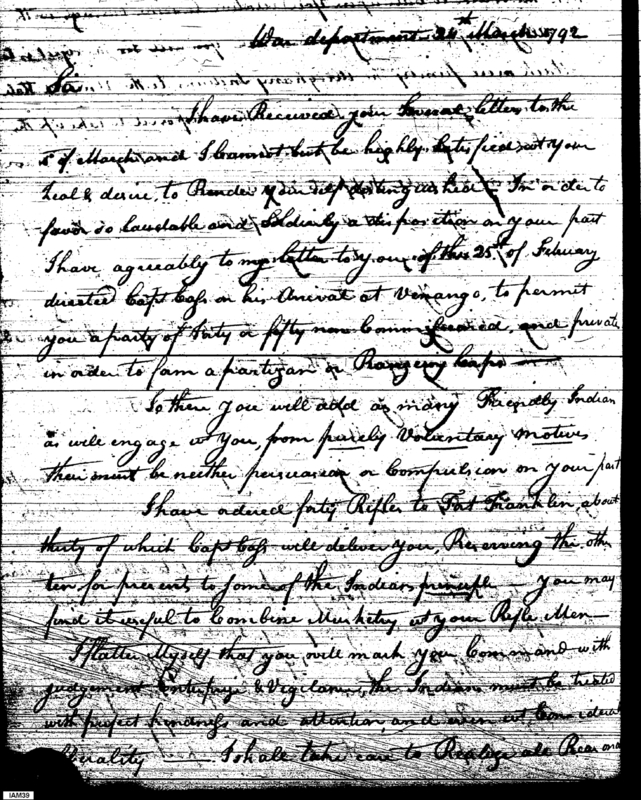 War department 24th March 1792
Sir
I have Received your Several letters to the
5 of March and I Cannot but be highly Satisfied wt your
Zeal & desire, to Render your self distinguished — In order to
favor so laudable and Soldierly a disposition on your part
I have agreeably to my letter to you of the 25th of February
directed Capt Cass on his Arrival at Venango, to permit
you a party of Forty or fifty non Commissioned, and private
in order to form a partizan or Rangeing Corps —
To these you will add as many Friendly Indian
as will engage wt you, from purely Voluntary motives
there must be neither persuasion or Compulsion on your part
I have ordered forty Rifles to Fort Franklin, about
thirty of which Capt Cass will deliver you, Reserving the othe
ten for presents to some of the Indians principle — you may
find it useful to Combine Musketry wt your Rifle Men —
I flatter Myself that you will mark your Command with
judgement Enterprize & Vigilance, the Indians must be treated
with perfect kindness and attention, and even wt Considerab
liberality — I shall take care to Realize all Reason